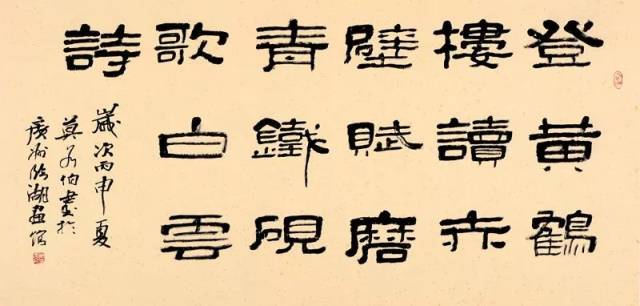 登黄鶴
樓讀赤
壁賦磨
青鐵硯
歌白雲
詩
歲次丙申夏
莫各伯書於
廣州湖畫館